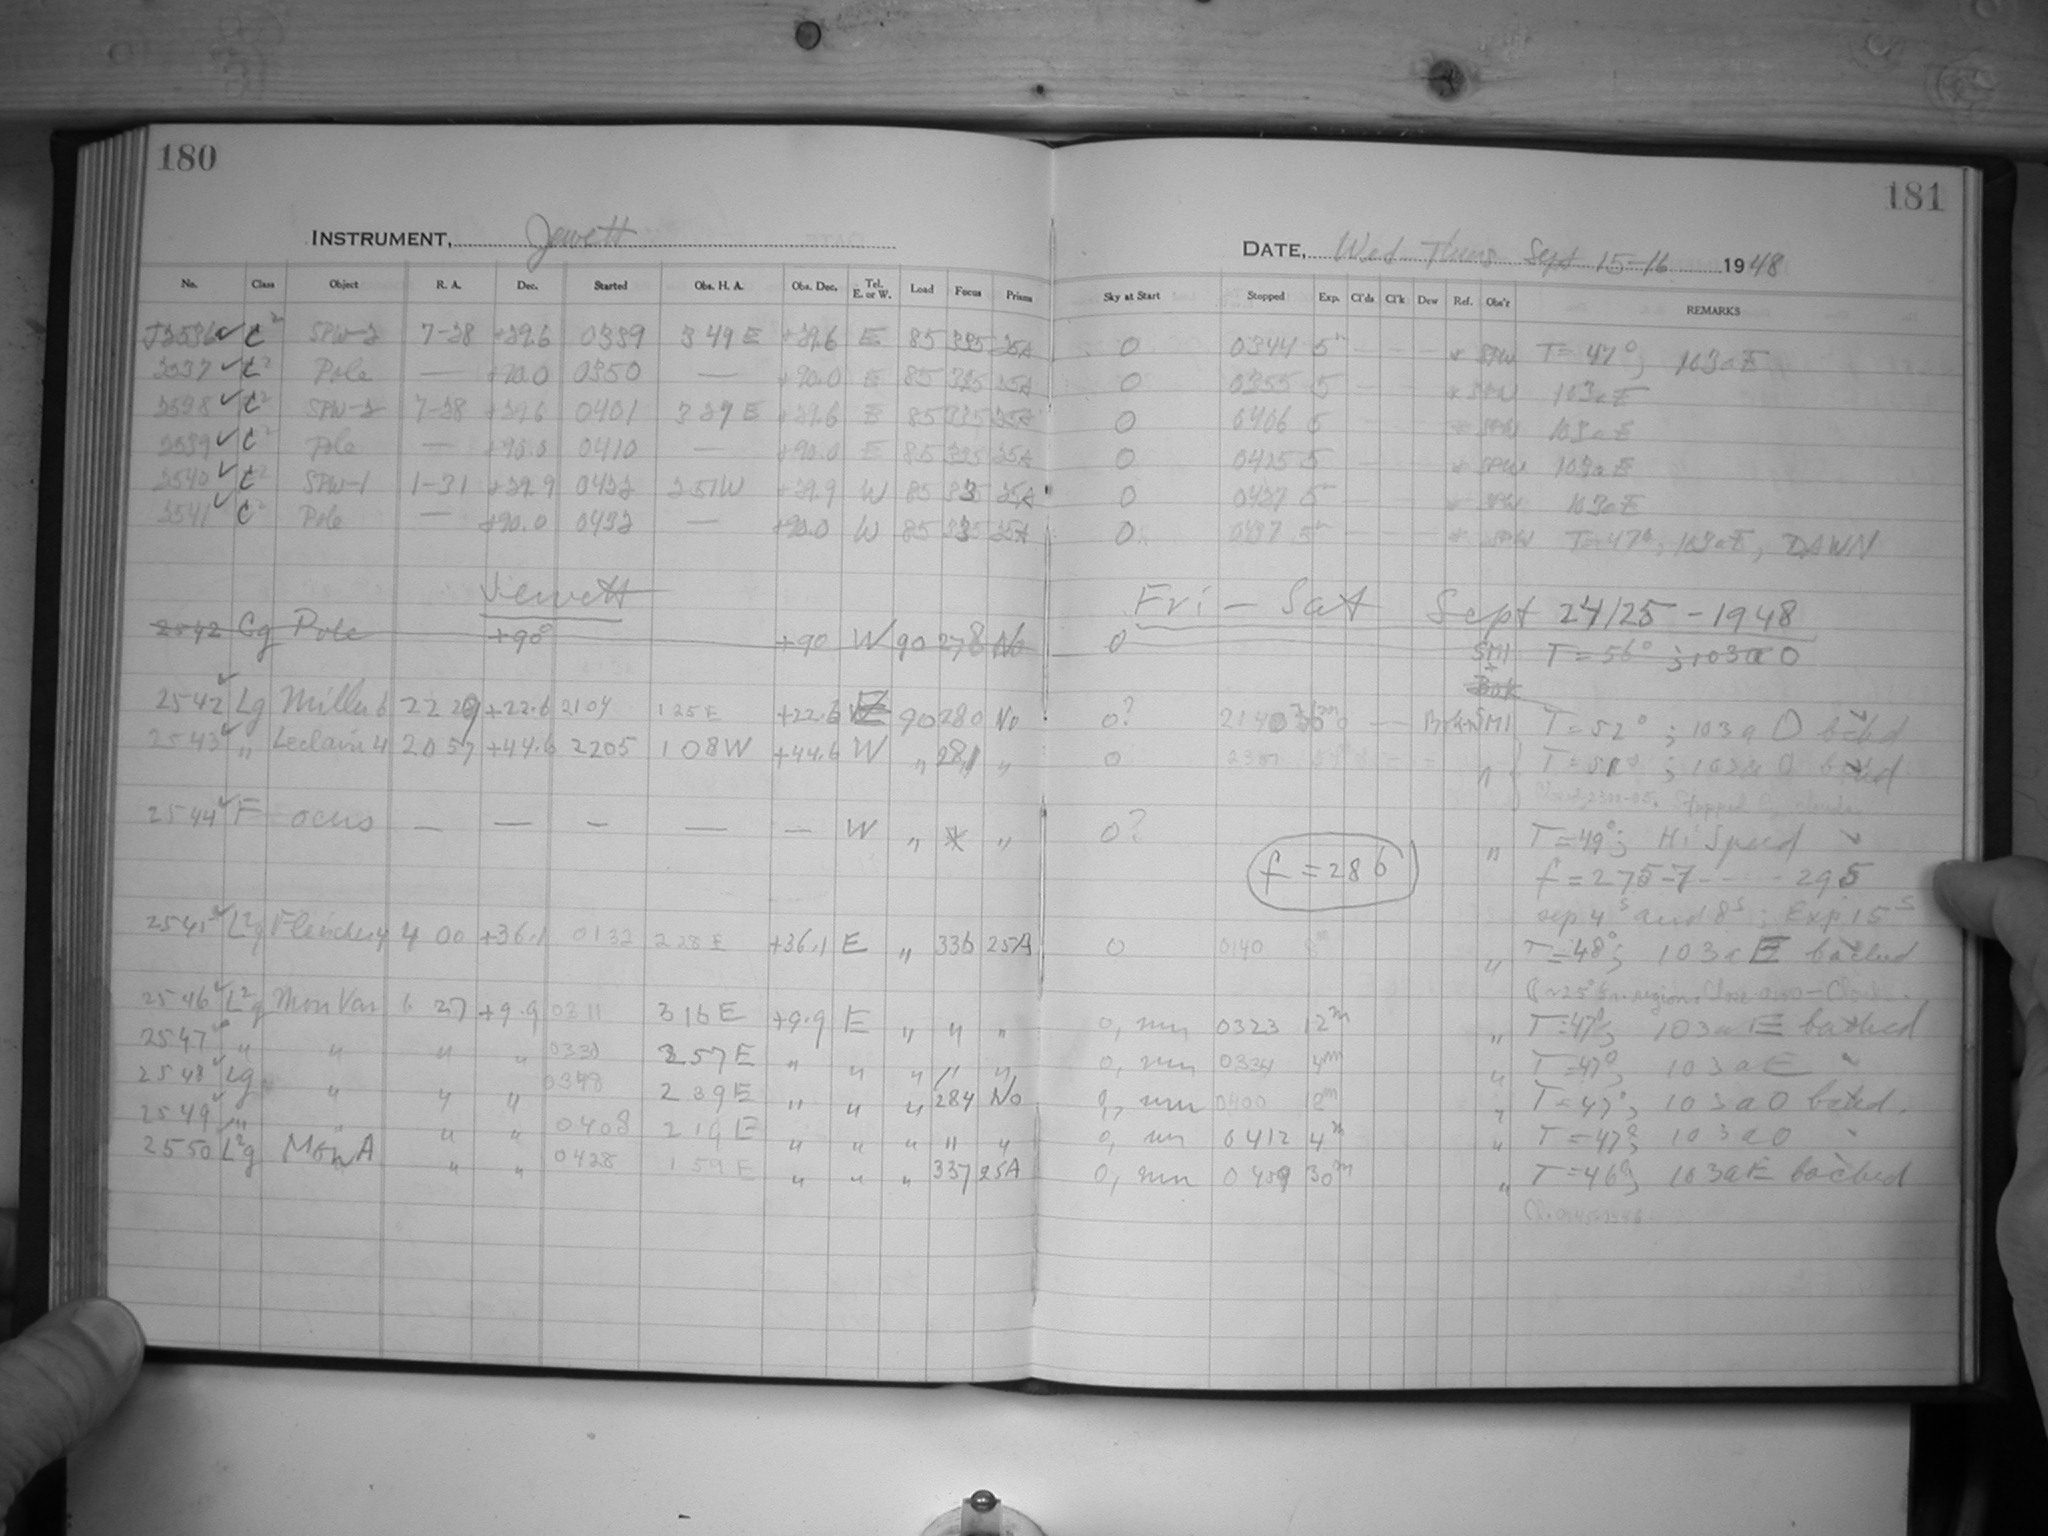 180
181
INSTRUMENT, Jewett
DATE, Wed Thurs Sept 15-16 1948
No. Class Object R. A. Dec. Started Obs. H. A. Obs. Dec. Tel. E. or W. Load Focus Prisms Sky at Start Stopped Exp. Cl'ds Cl'k Dew Ref. Obs'r REMARKS
J2536 ✓ C² SPW-2 7-28 +29.6 0339 3 49 E +29.6 E 85 335 25A 0 0344 5m — — — * SPW T=47°; 103aE
2537 ✓ C² Pole — +90.0 0350 — +90.0 E 85 335 25A 0 0355 5 — — — * SPW 103aE
2538 ✓ C² SPW-2 7-28 +29.6 0401 3 27 E +29.6 E 85 335 25A 0 0406 5 — — — * SPW 103aE
2539 ✓ C² Pole — +90.0 0410 — +90.0 E 85 335 25A 0 0415 5 — — — * SPW 103aE
2540 ✓ C² SPW-1 1-31 +29.9 0422 2 51W +29.9 W 85 335 25A 0 0427 5 — — — * SPW 103aE
2541 ✓ C² Pole — +90.0 0432 — +90.0 W 85 335 25A 0 0437 5m — — — * SPW T=47°; 103aE, DAWN
Jewett Fri - Sat Sept 24/25 - 1948
2542 Cg Pole +90° +90 W 90 278 No 0 SMI + Bok T = 56°; 103a O
2542 ✓ Lg Miller 6 22 29 +22.6 2104 1 25 E +22.6 E 90 280 No 0? 2140 Bok+SMI T=52°; 103a O backed
2543 ✓ " Leclaire 4 20 57 +44.6 2205 1 08W +44.6 W " 281 " 0 " T=51°; 103a O backed
Stopped by clouds
2544 ✓ Focus — — — — — W " * " 0? " T=49°; Hi Speed
f = 286 f = 275-7 - - - - 295
sep 4s and 8s; Exp 15s
2545 ✓ L²g 4 00 +36.1 0132 2 28 E +36.1 E " 336 25A 0 0140 8m " T=48°; 103aE backed
2546 ✓ L²g Mon Var 6 27 +9.9 0311 3 16 E +9.9 E " " " 0, 0323 12m " T=47°; 103aE backed
2547 ✓ " " " " 0330 2 57 E " " " " " 0, 0334 4m " T=47°; 103aE "
2548 ✓ Lg " " " 0348 2 39 E " " " 284 No 0, 0400 12m " T=47°; 103aO backed.
2549 ✓ " " " " 0408 2 19 E " " " " " 0, 0412 4m " T=47°; 103aO "
2550 L²g Mon A " " 0428 1 59 E " " " 337 25A 0, 0459 30m " T=46°; 103aE backed